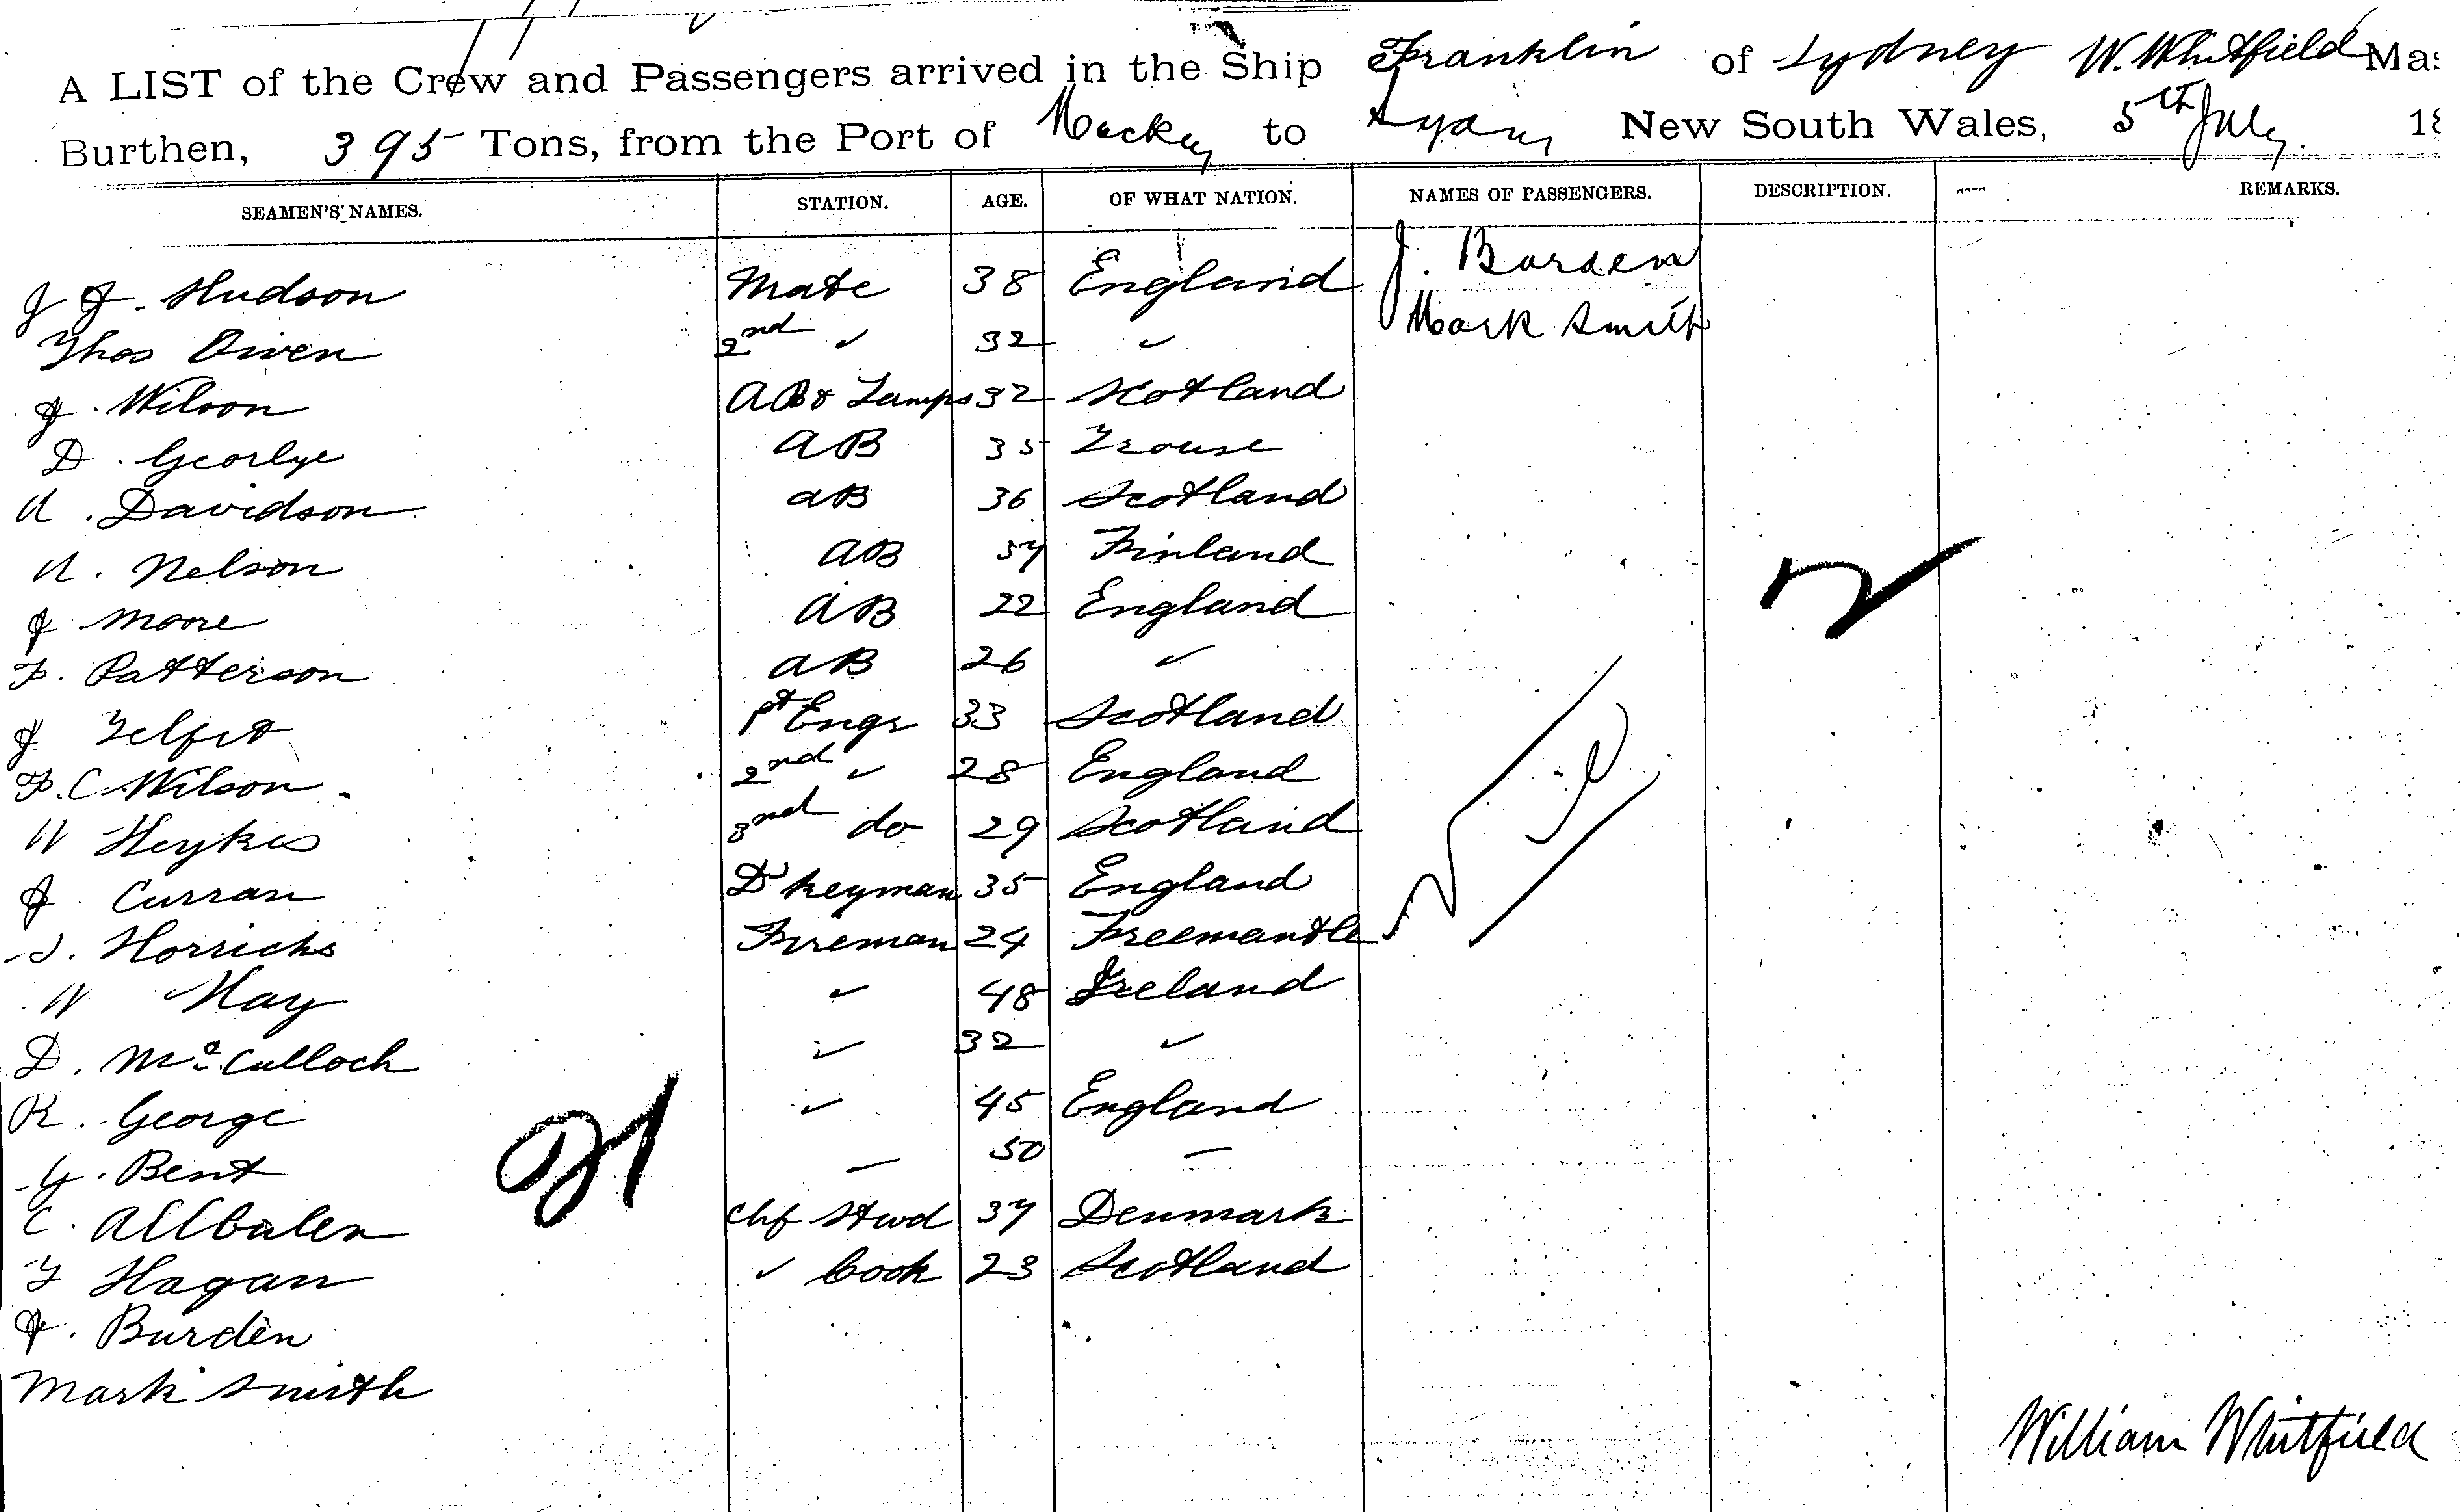 A LIST of the Crew and Passengers arrived in the Ship Franklin of Sydney W. Whitfield Mas
Burthen, 395 Tons, from the Port of Mackay to Sydney New South Wales, 5th July 18
SEAMEN'S NAMES. STATION. AGE. OF WHAT NATION. NAMES OF PASSENGERS. DESCRIPTION. REMARKS.
J J. Hudson Mate 38 England J. Burden
Thos Owen 2nd " 32 " Mark Smith
J. Wilson AB & Lamps 32 Scotland
D. Georlye AB 35
A. Davidson AB 36 Scotland
A. Nelson AB 37 Finland
J Moore AB 22 England
F. Patterson AB 26 "
J Telfit 1st Engr 33 Scotland
F. C Wilson 2nd " 28 England
W Heykes 3nd do 29 Scotland
J Curran D'keyman 35 England
J. Horricks Fireman 24 Freemantle
W Hay " 48 Ireland
D. McCulloch " 32 "
R. George " 45 England
G. Bent — 50 —
C. Allbalen Chf Stwd 37 Denmark
T Hagan " Cook 23 Scotland
J. Burden
Mark Smith
21
2
William Whitfield